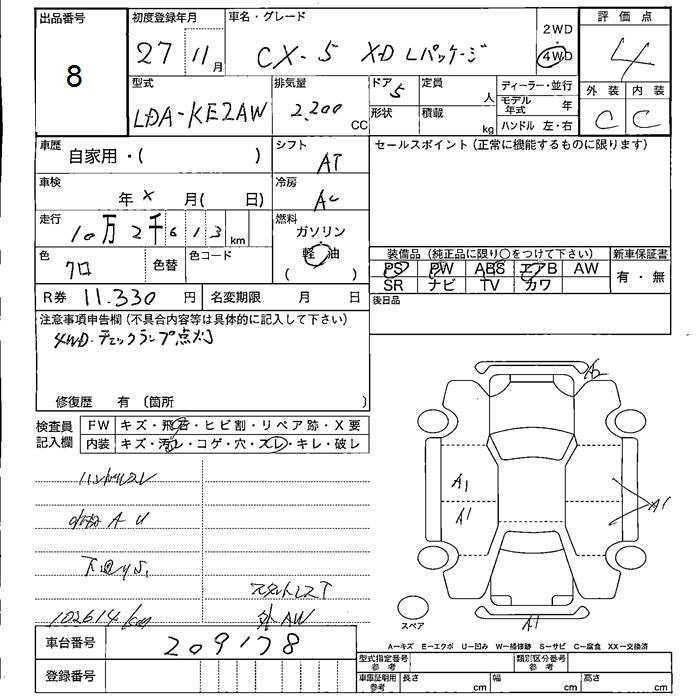 出品番号
8
初度登録年月
27 11月
車名・グレード
CX-5 XD Lパッケージ
2WD
・
4WD
評価点
4
外装 内装
C C
型式
LDA-KE2AW
排気量
2,200 CC
ドア 5
形状
定員 人
積載 kg
ディーラー・並行
モデル年式 年
ハンドル 左・右
車歴
自家用・( )
シフト
AT
セールスポイント(正常に機能するものに限ります)
車検
年 × 月( 日)
冷房
AC
走行
10万2千613km
燃料
ガソリン
軽油
( )
色
クロ
色替
色コード
装備品(純正品に限り○をつけて下さい)
PS PW ABS エアB AW
SR ナビ TV カワ
新車保証書
有・無
R券 11.330円
名変期限 月 日
後日品
注意事項申告欄(不具合内容等は具体的に記入して下さい)
4WD.チェックランプ点灯
修復歴 有〔箇所 〕
検査員記入欄
FW キズ・飛石・ヒビ割・リペア跡・X要
内装 キズ・汚れ・コゲ・穴・スレ・キレ・破レ
A2
A1
A1
A1
A1
102614km
外AW
スペア
車台番号
209178
登録番号
A－キズ E－エクボ U－凹み W－補修跡 S－サビ C－腐食 XX－交換済
型式指定番号 参考
類別区分番号 参考
車庫証明用 参考
長さ cm
幅 cm
高さ cm